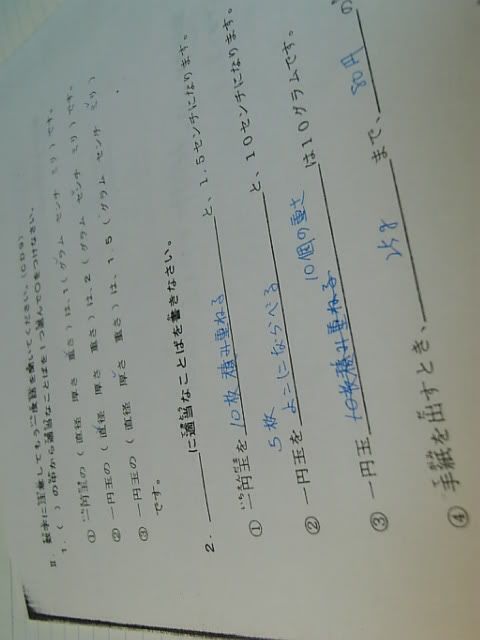 II. 数字に注意してもう一度話を聞いてください。(CD9)
1.( )の中から適当なことばを1つ選んで○をつけなさい。
① 一円玉の( 直径 厚さ 重さ )は、1( グラム センチ ミリ )です。
② 一円玉の( 直径 厚さ 重さ )は、2( グラム センチ ミリ )です。
③ 一円玉の( 直径 厚さ 重さ )は、1.5( グラム センチ ミリ )
です。
2. に適当なことばを書きなさい。
① 一円玉を 10枚積み重ねる と、1.5センチになります。
5枚
② 一円玉を よこにならべる と、10センチになります。
10個の重さ
③ 一円玉 10枚積み重ねる は10グラムです。
④ 手紙を出すとき、 25g まで、 80円 の